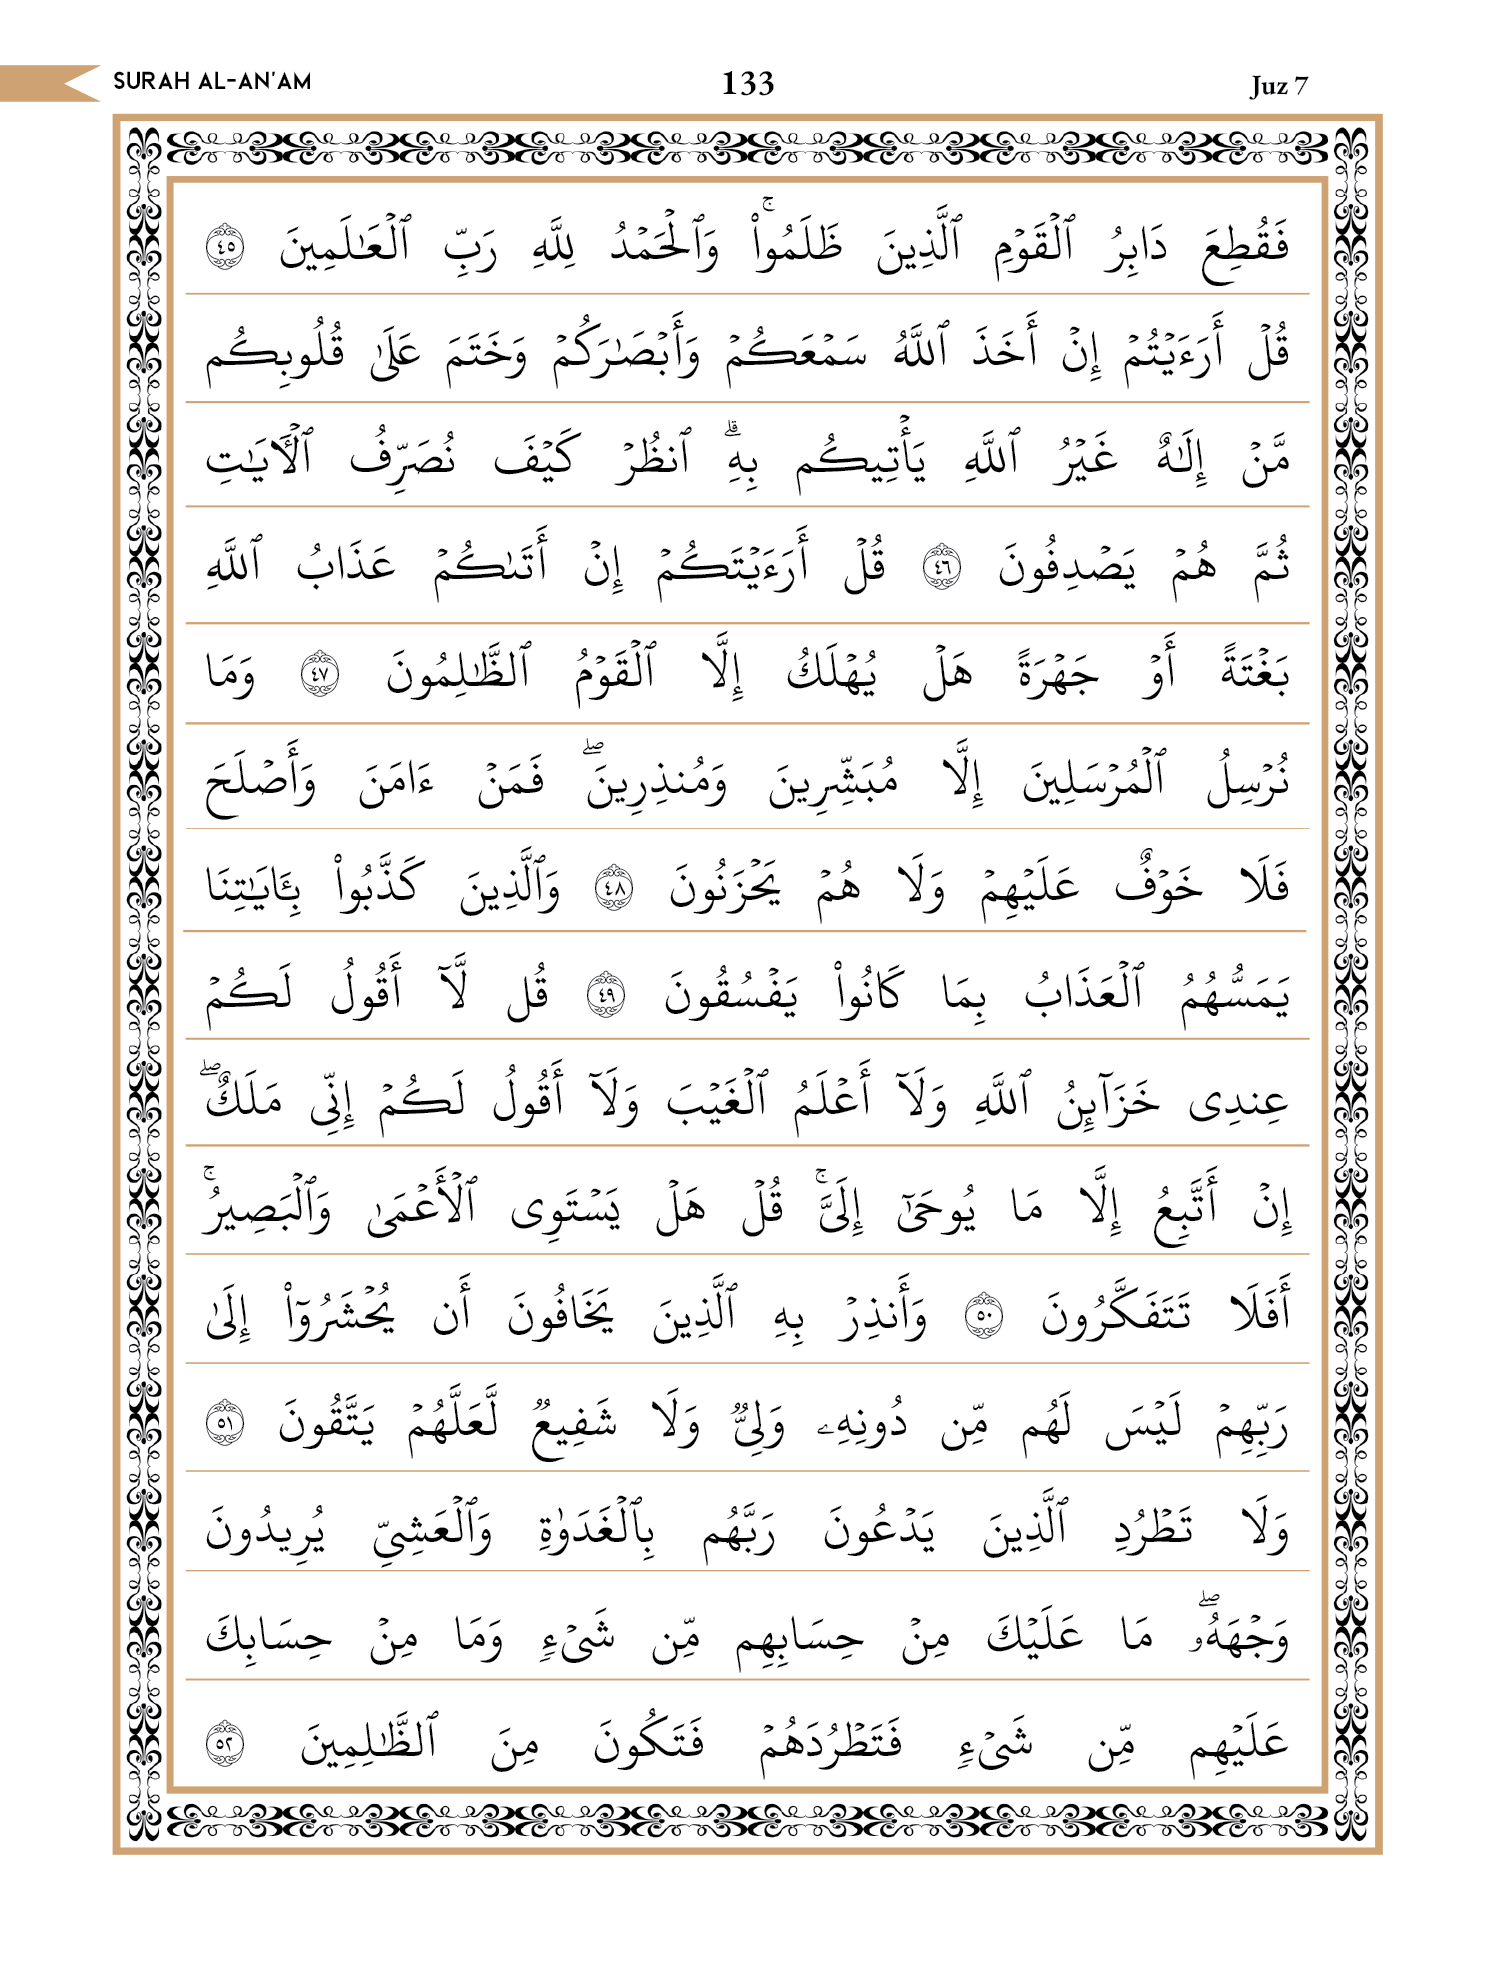 SURAH AL-AN'AM 133 Juz 7
فَقُطِعَ دَابِرُ ٱلْقَوْمِ ٱلَّذِينَ ظَلَمُوا۟ ۚ وَٱلْحَمْدُ لِلَّهِ رَبِّ ٱلْعَـٰلَمِينَ ٤٥
قُلْ أَرَءَيْتُمْ إِنْ أَخَذَ ٱللَّهُ سَمْعَكُمْ وَأَبْصَـٰرَكُمْ وَخَتَمَ عَلَىٰ قُلُوبِكُم
مَّنْ إِلَـٰهٌ غَيْرُ ٱللَّهِ يَأْتِيكُم بِهِ ۗ ٱنظُرْ كَيْفَ نُصَرِّفُ ٱلْـَٔايَـٰتِ
ثُمَّ هُمْ يَصْدِفُونَ ٤٦ قُلْ أَرَءَيْتَكُمْ إِنْ أَتَىٰكُمْ عَذَابُ ٱللَّهِ
بَغْتَةً أَوْ جَهْرَةً هَلْ يُهْلَكُ إِلَّا ٱلْقَوْمُ ٱلظَّـٰلِمُونَ ٤٧ وَمَا
نُرْسِلُ ٱلْمُرْسَلِينَ إِلَّا مُبَشِّرِينَ وَمُنذِرِينَ ۖ فَمَنْ ءَامَنَ وَأَصْلَحَ
فَلَا خَوْفٌ عَلَيْهِمْ وَلَا هُمْ يَحْزَنُونَ ٤٨ وَٱلَّذِينَ كَذَّبُوا۟ بِـَٔايَـٰتِنَا
يَمَسُّهُمُ ٱلْعَذَابُ بِمَا كَانُوا۟ يَفْسُقُونَ ٤٩ قُل لَّآ أَقُولُ لَكُمْ
عِندِى خَزَآئِنُ ٱللَّهِ وَلَآ أَعْلَمُ ٱلْغَيْبَ وَلَآ أَقُولُ لَكُمْ إِنِّى مَلَكٌ ۖ
إِنْ أَتَّبِعُ إِلَّا مَا يُوحَىٰٓ إِلَىَّ ۚ قُلْ هَلْ يَسْتَوِى ٱلْأَعْمَىٰ وَٱلْبَصِيرُ ۚ
أَفَلَا تَتَفَكَّرُونَ ٥٠ وَأَنذِرْ بِهِ ٱلَّذِينَ يَخَافُونَ أَن يُحْشَرُوٓا۟ إِلَىٰ
رَبِّهِمْ لَيْسَ لَهُم مِّن دُونِهِۦ وَلِىٌّ وَلَا شَفِيعٌ لَّعَلَّهُمْ يَتَّقُونَ ٥١
وَلَا تَطْرُدِ ٱلَّذِينَ يَدْعُونَ رَبَّهُم بِٱلْغَدَوٰةِ وَٱلْعَشِىِّ يُرِيدُونَ
وَجْهَهُۥ ۖ مَا عَلَيْكَ مِنْ حِسَابِهِم مِّن شَىْءٍ وَمَا مِنْ حِسَابِكَ
عَلَيْهِم مِّن شَىْءٍ فَتَطْرُدَهُمْ فَتَكُونَ مِنَ ٱلظَّـٰلِمِينَ ٥٢